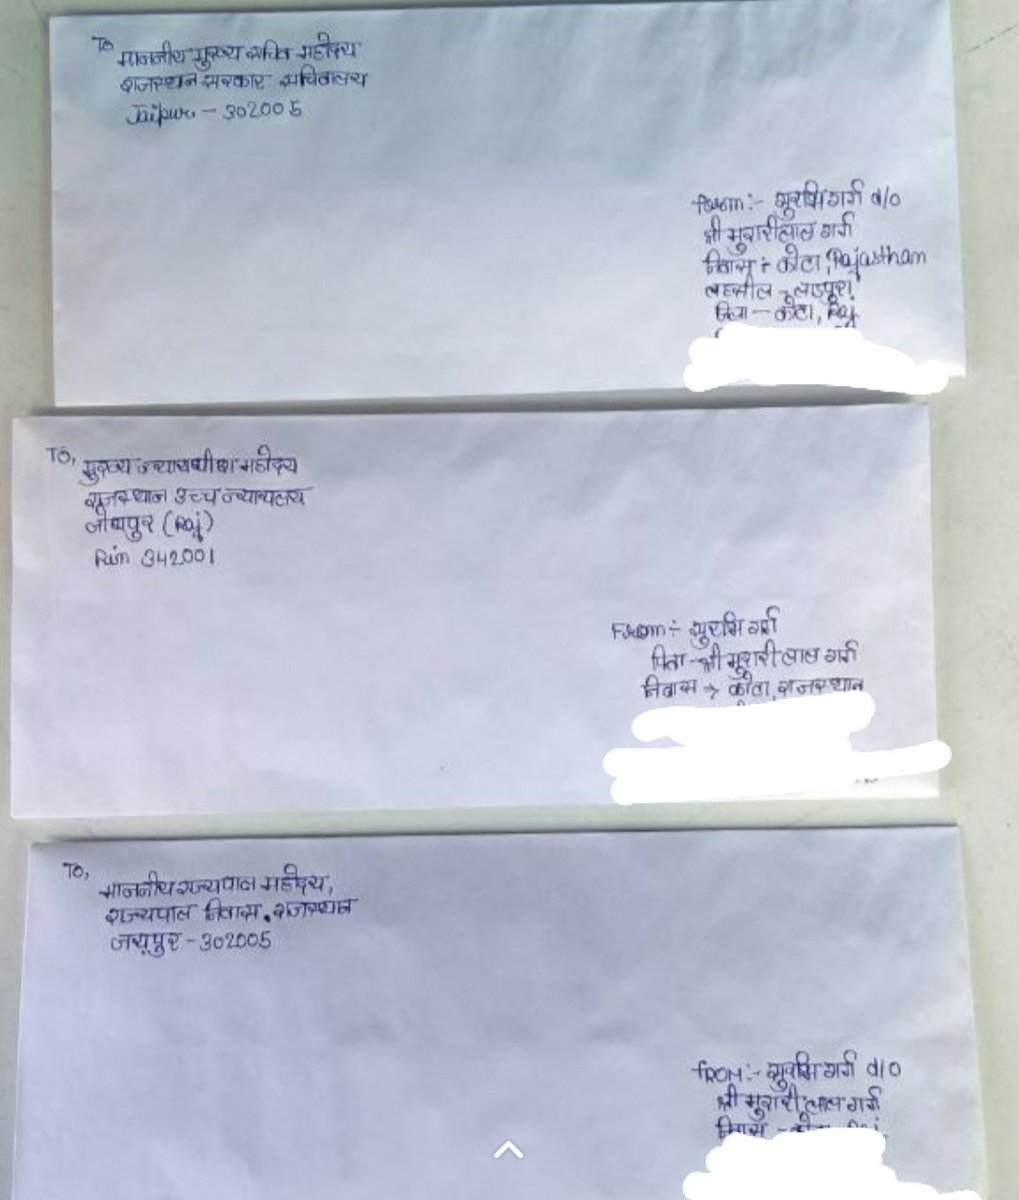 To
माननीय मुख्य सचिव महोदय
राजस्थान सरकार सचिवालय
Jaipur - 302005
From :- सुरभि गर्ग d/o
श्री मुरारीलाल गर्ग
निवास :- कोटा, Rajasthan
तहसील - लाडपुरा
जिला - कोटा, Raj
To,
मुख्य न्यायाधीश महोदय
राजस्थान उच्च न्यायालय
जोधपुर (Raj)
Pin 342001
From :- सुरभि गर्ग
पिता - श्री मुरारी लाल गर्ग
निवास → कोटा, राजस्थान
To,
माननीय राज्यपाल महोदय,
राज्यपाल निवास, राजस्थान
जयपुर - 302005
FROM :- सुरभि गर्ग d/o
श्री मुरारी लाल गर्ग
निवास - कोटा, Raj.